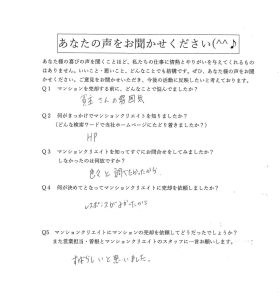 あなたの声をお聞かせください(^^♪
あなた様の喜びの声を聞くことほど、私たちの仕事に情熱とやりがいを与えてくれるもの
はありません。いいこと・悪いこと、どんなことでも結構です。ぜひ、あなた様の声をお聞
かせください。ご意見をお聞かせいただき、今後の活動に反映したいと考えております。
Q1 マンションを売却する前に、どんなことで悩んでましたか？
買主さんの雰囲気
Q2 何がきっかけでマンションクリエイトを知りましたか？
（どんな検索ワードで当社ホームページにたどり着きましたか？）
HP
Q3 マンションクリエイトを知ってすぐにお問合せをしてみましたか？
しなかったのは何故ですか？
色々と調べたかったから
Q4 何が決めてとなってマンションクリエイトに売却を依頼しましたか？
レスポンスがよかったから
Q5 マンションクリエイトにマンションの売却を依頼してどうだったでしょうか？
また営業担当・菅根とマンションクリエイトのスタッフに一言お願いします。
すばらしいと思いました。